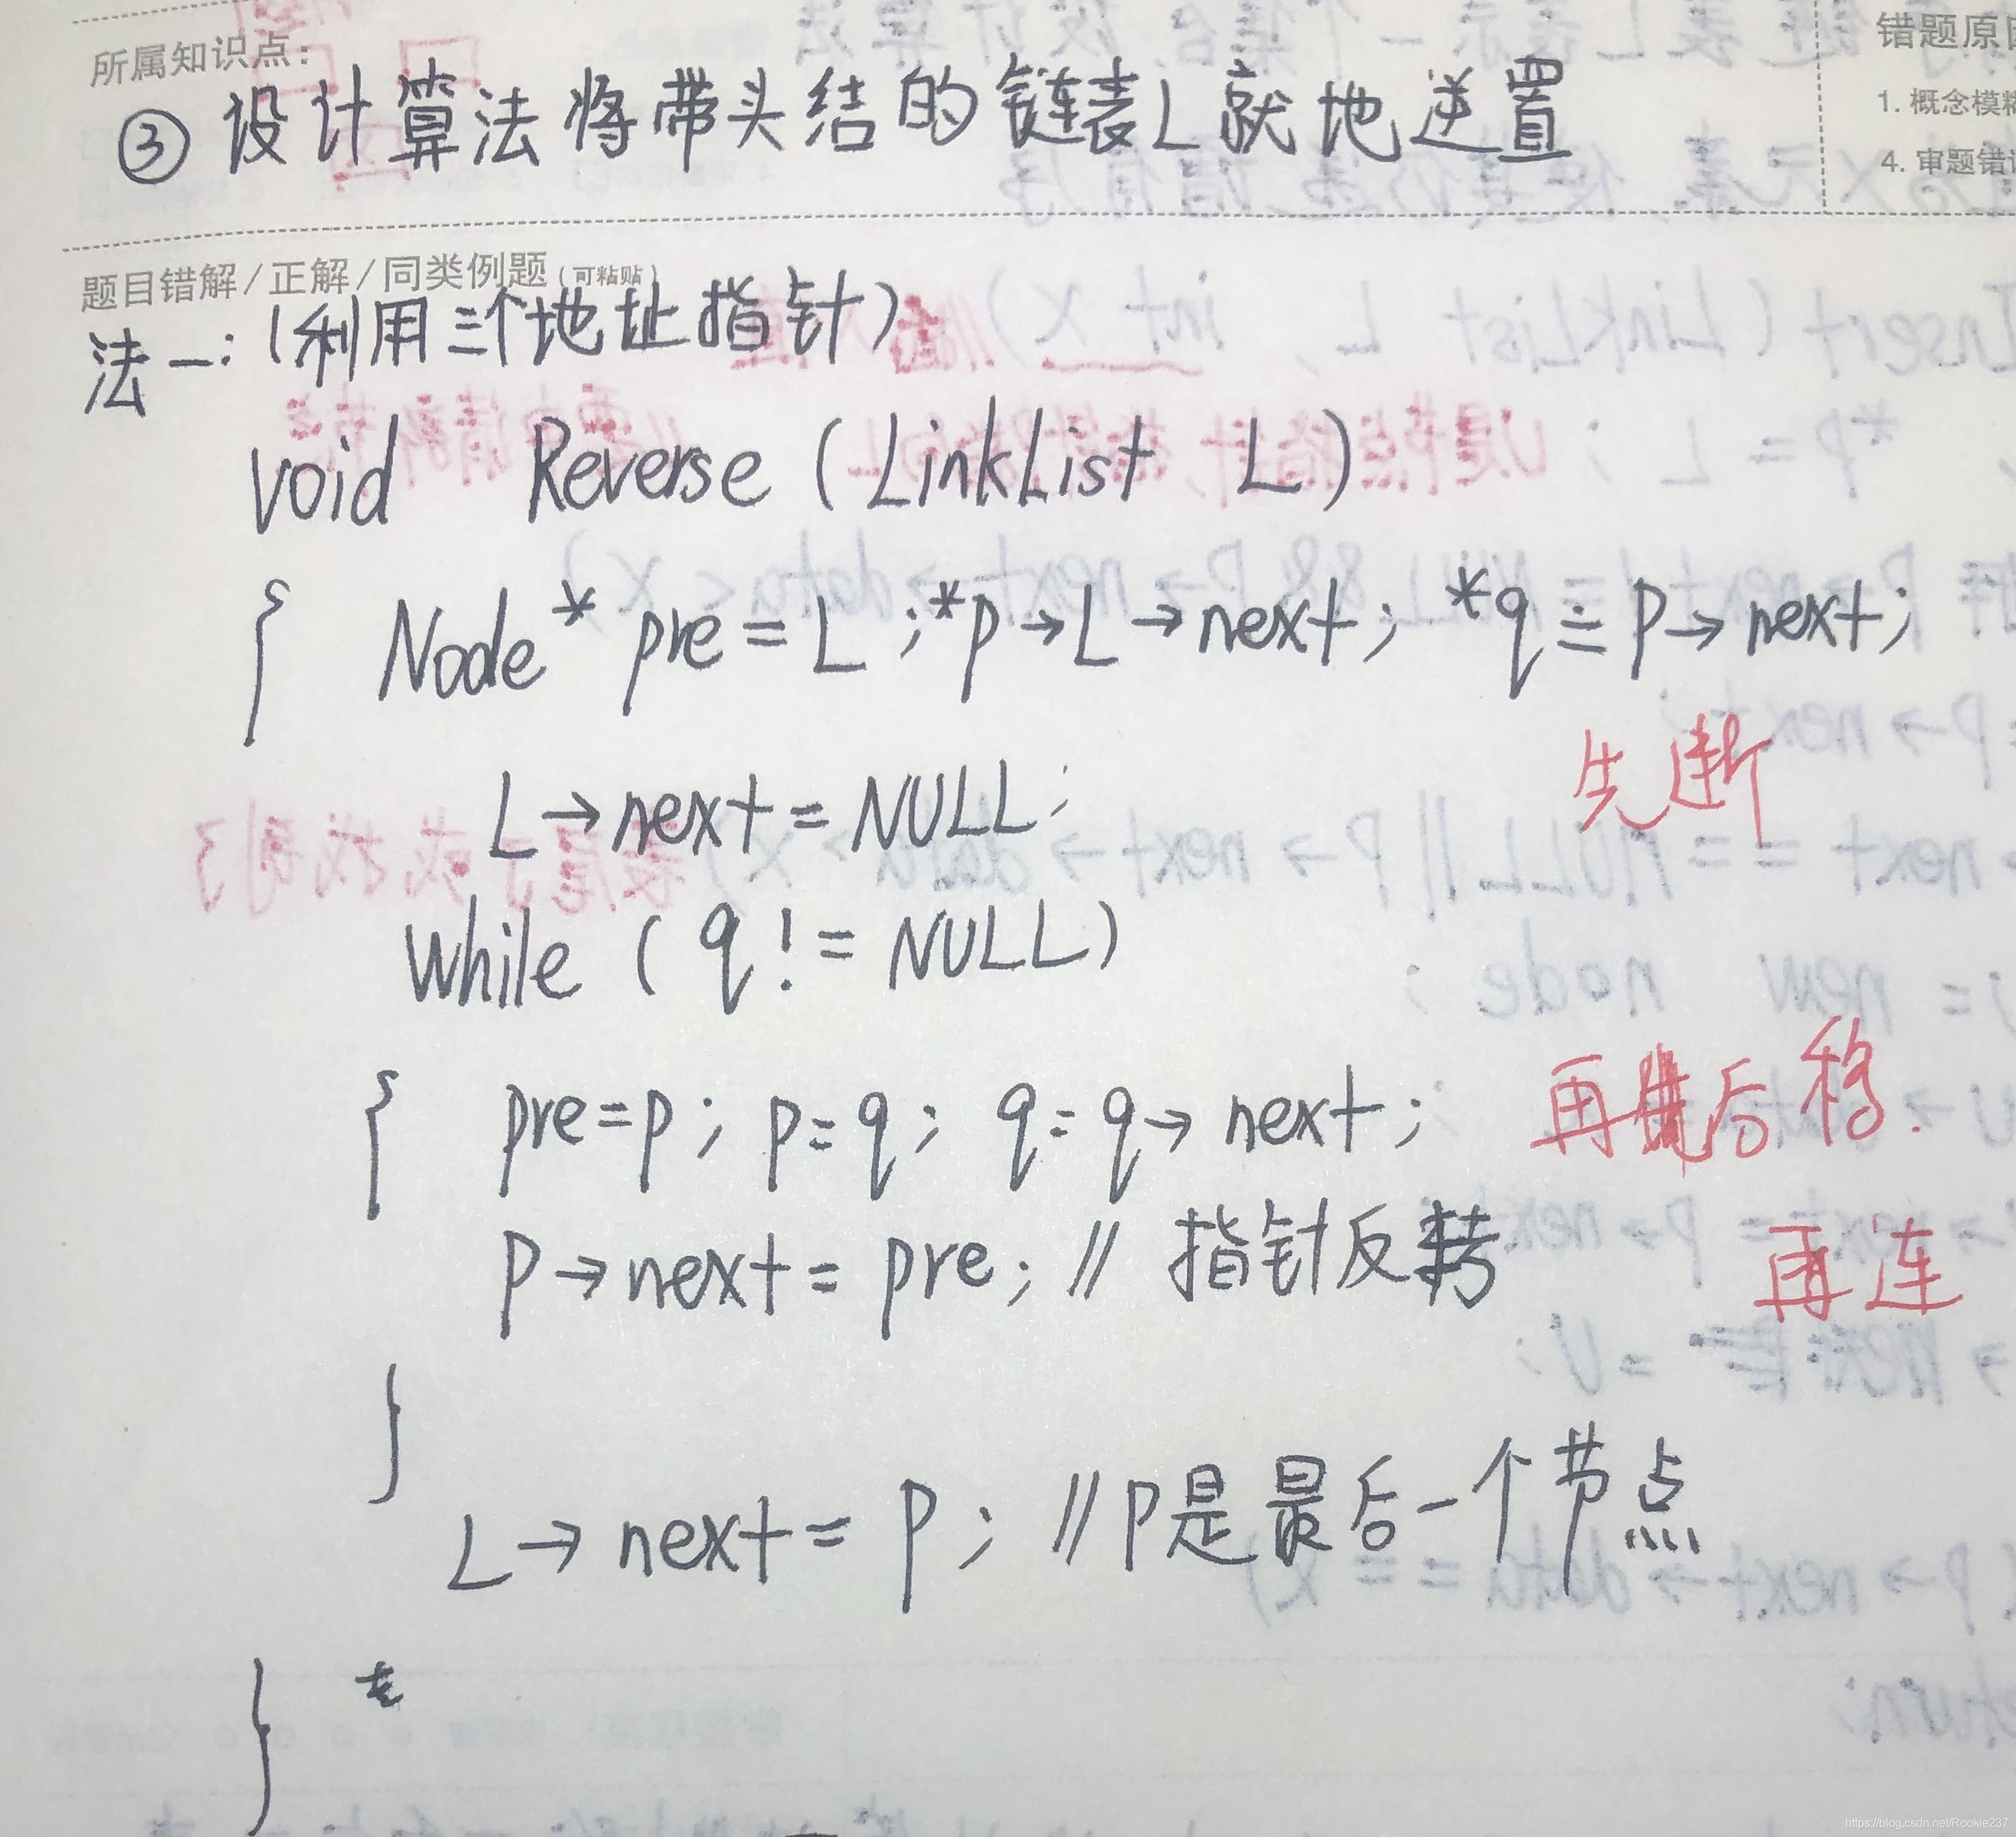 所属知识点:
错题原
③ 设计算法将带头结的链表L就地逆置
1. 概念模糊
4. 审题错
题目错解/正解/同类例题(可粘贴)
法一:(利用三个地址指针)
void Reverse (LinkList L)
{ Node* pre = L ; *p → L → next ; *q = p → next ;
先断
L → next = NULL ;
while ( q != NULL )
{ pre = p ; p = q ; q = q → next ;
再 后移.
p → next = pre ; // 指针反转
再连
}
L → next = p ; // P是最后一个节点
}
https://blog.csdn.net/Rookie237